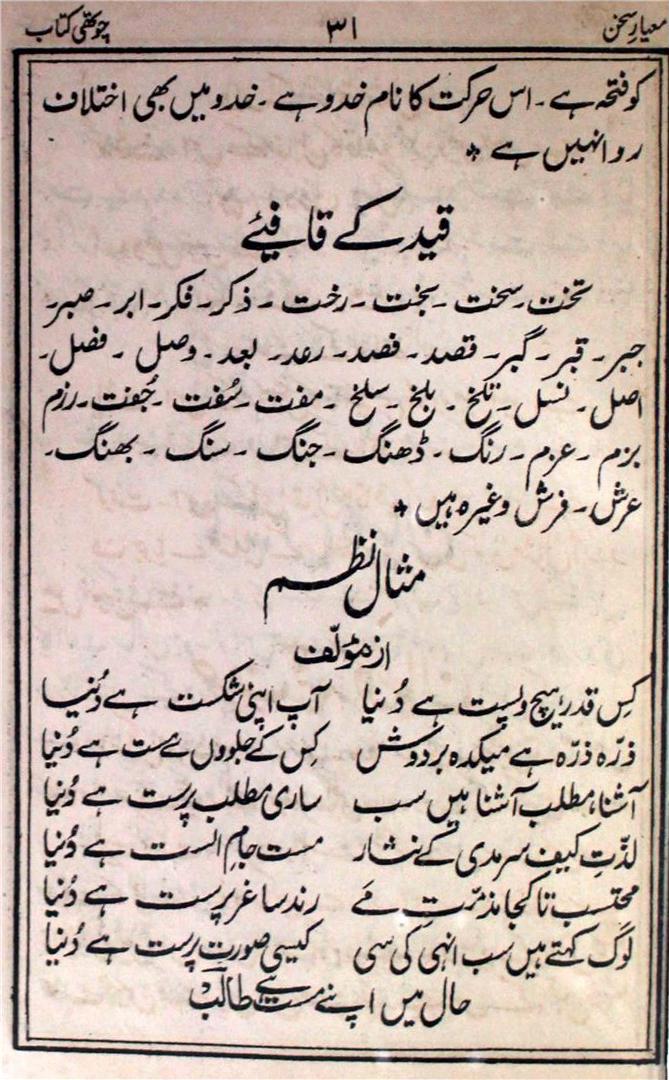 معیارِ سخن ۳۱ چوتھی کتاب
کو فتحہ ہے۔ اس حرکت کا نام خدو ہے۔ خدو میں بھی اختلاف
روا نہیں ہے *
قید کے قافیئے
تخت۔ سخت۔ بخت۔ رخت۔ ذکر۔ فکر۔ ابر۔ صبر۔
جبر۔ قبر۔ گبر۔ قصد۔ فصد۔ رعد۔ بعد۔ وصل۔ فصل۔
اصل۔ نسل۔ تلخ۔ بلخ۔ سلخ۔ مفت۔ سُفت۔ جُفت۔ رزم
بزم۔ عزم۔ رنگ۔ ڈھنگ۔ جنگ۔ سنگ۔ بھنگ۔
عرش۔ فرش وغیرہ ہیں *
مثال نظم
از مؤلّف
کِس قدر ہیچ و پست ہے دُنیا آپ اپنی شکست ہے دُنیا
ذرّہ ذرّہ ہے میکدہ بردوش کِس کے جلووں سے مست ہے دُنیا
آشنا، مطلب آشنا ہیں سب ساری مطلب پرست ہے دُنیا
لذّتِ کیف سرمدی کے نثار مست جامِ الست ہے دُنیا
محتسب تا کجا مذمّتِ مَے رند ساغر پرست ہے دُنیا
لوگ کہتے ہیں سب انہی کی سی کیسی صورت پرست ہے دُنیا
حال میں اپنے مست ہے طالبؔ